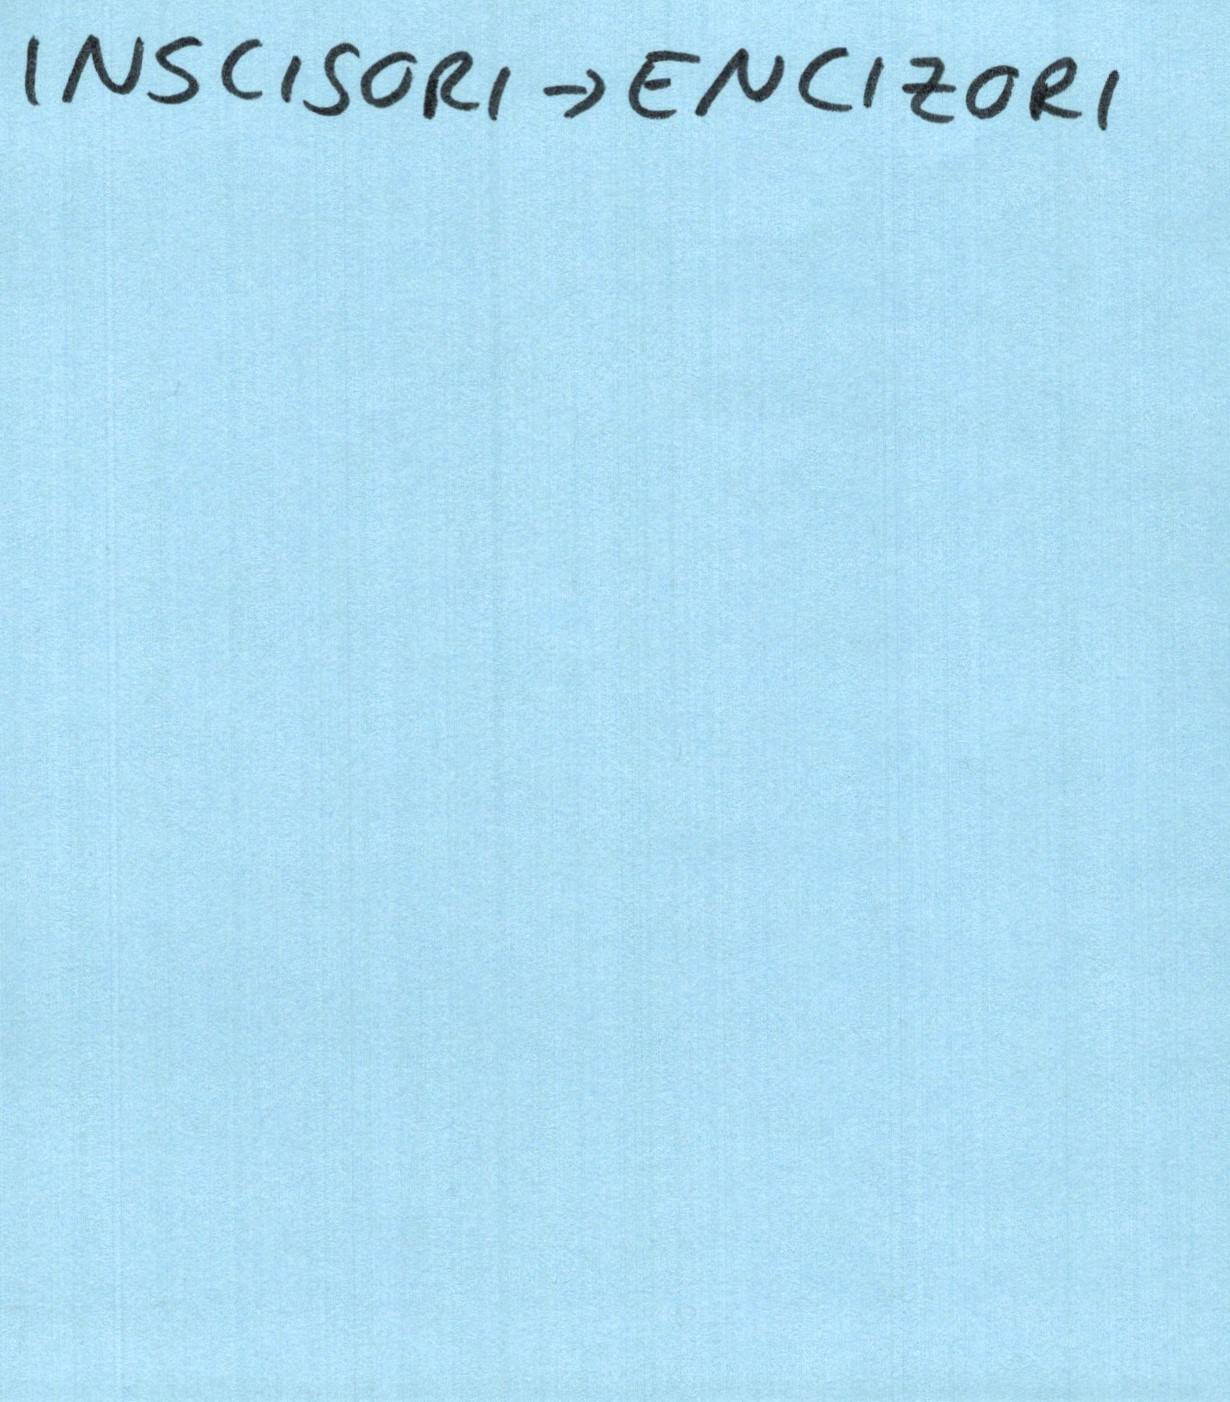 INSCISORI → ENCIZORI